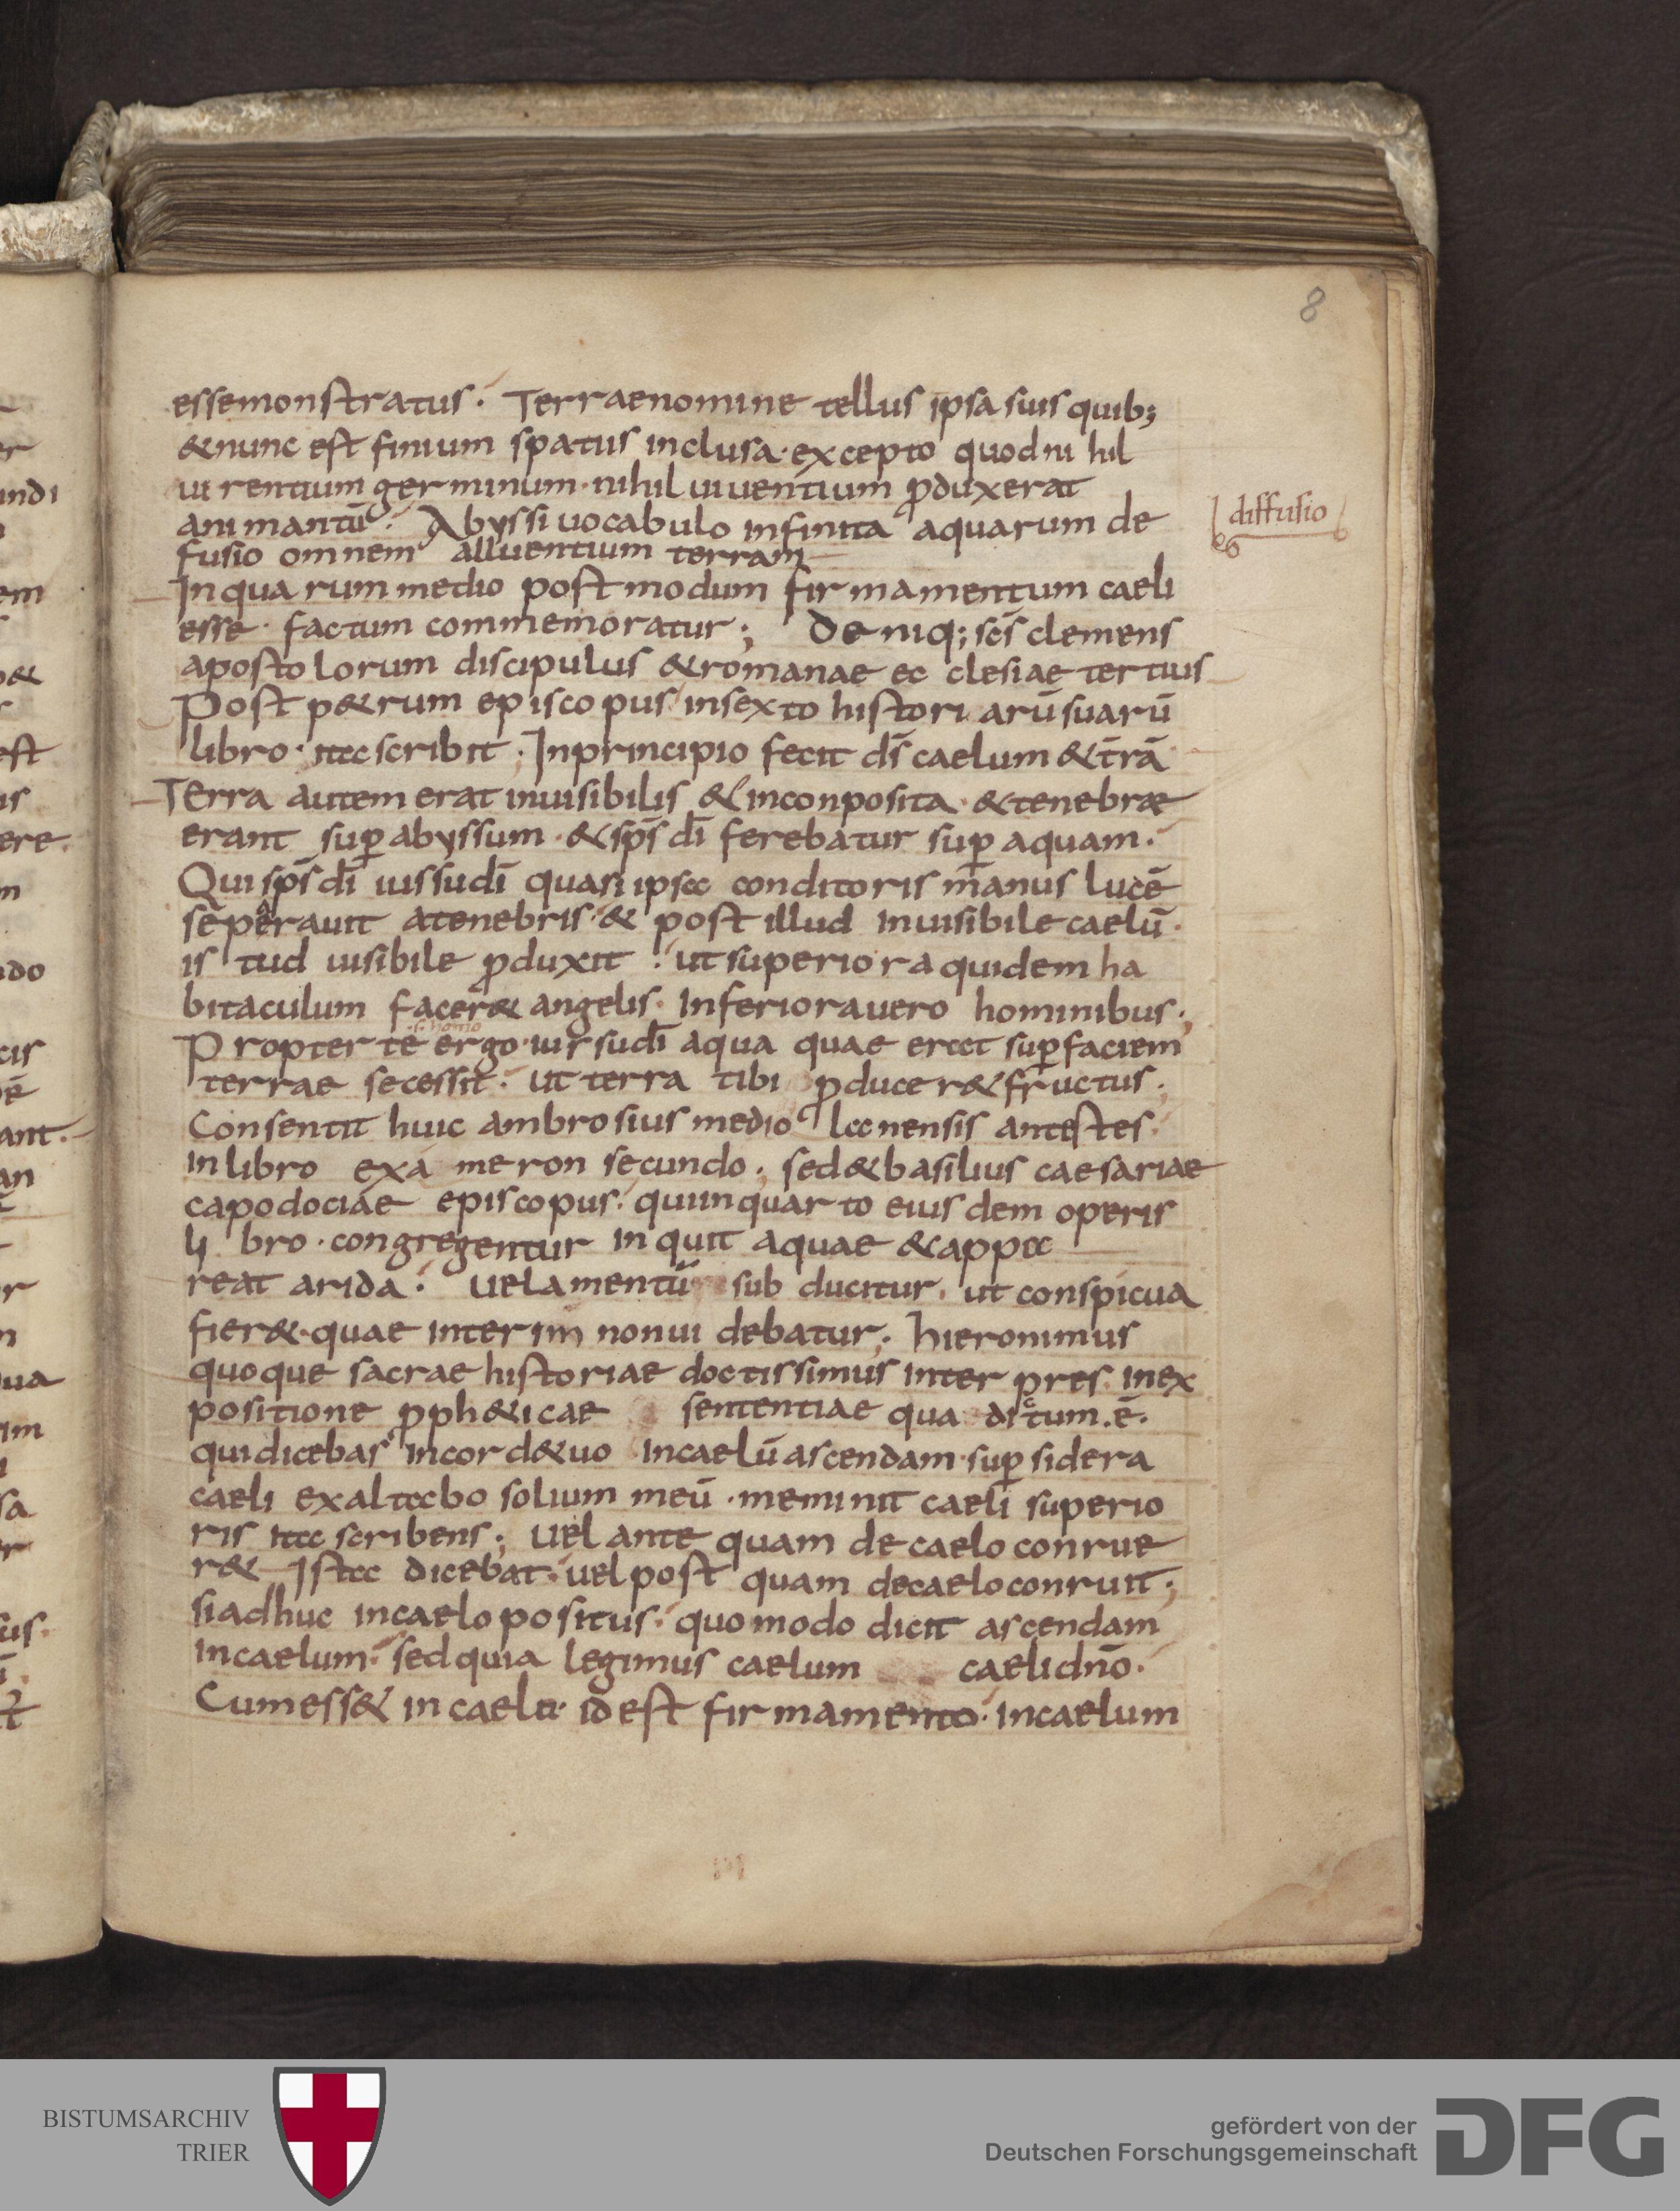 8
essemonstratus. Terraenomine tellus ipsa suis quib;
&nunc est finium spatiis inclusa. excepto quod ni hil
ui rentium ger minum. nihil uiuentium ꝓduxerat
ani mantū. Abyssi uocabulo infinita aquarum de
diffusio
fusio omnem alluentium terram
In qua rum medio post modum fir mamentum caeli
esse. factum commemoratur; De niq; scs̄ clemens
aposto lorum discipulus &romanae ec clesiae tertius
Post p&rum episco pus insexto histori arū suarū
libro. ita scribit. Inprincipio fecit ds̄ caelum & trā
Terra autem erat inuisibilis & inconposita. & tenebrae
erant suꝑ abyssum. & sps̄ dī ferebatur suꝑ aquam.
Qui sps̄ dī iussudī quasi ipsa conditoris manus lucē
seperauit atenebris. & post illud inuisibile caelū.
is tud uisibile ꝓduxit. ut superiora quidem ha
bitaculum facer& angelis. Inferiora uero hominibus;
.s. homo
Propter te ergo. iursudī aqua quae erat suꝑ faciem
terrae secessit. ut terra tibi ꝓducer& fructus;
Consentit huic ambrosius medio lanensis antestes.
in libro exa meron secundo; sed & basilius caesariae
capodociae episcopus. quiinquarto eius dem operis
li bro. congregentur in quit aquae & appa
reat arida. Uelamentū sub ducitur. ut conspicua
fier&. quae interim nonui debatur; hieronimus
quoque sacrae historiae doctissimus inter pres. inex
positione ꝓph&icae sententiae qua dictum .ē.
quidicebas incord&uo incaelū ascendam. suꝑ sidera
caeli exaltabo solium meū. meminit caeli superio
ris ita scribens; Uel ante quam de caelo conrue
r& Ista dicebat. uel post quam decaeloconruit;
si adhuc incaelo positus. quo modo dicit ascendam
incaelum. sed quia legimus caelum caeli dn̄o.
Cum ess& in caelo. id est fir mamento. incaelum
BISTUMSARCHIV
TRIER
gefördert von der
Deutschen Forschungsgemeinschaft
DFG